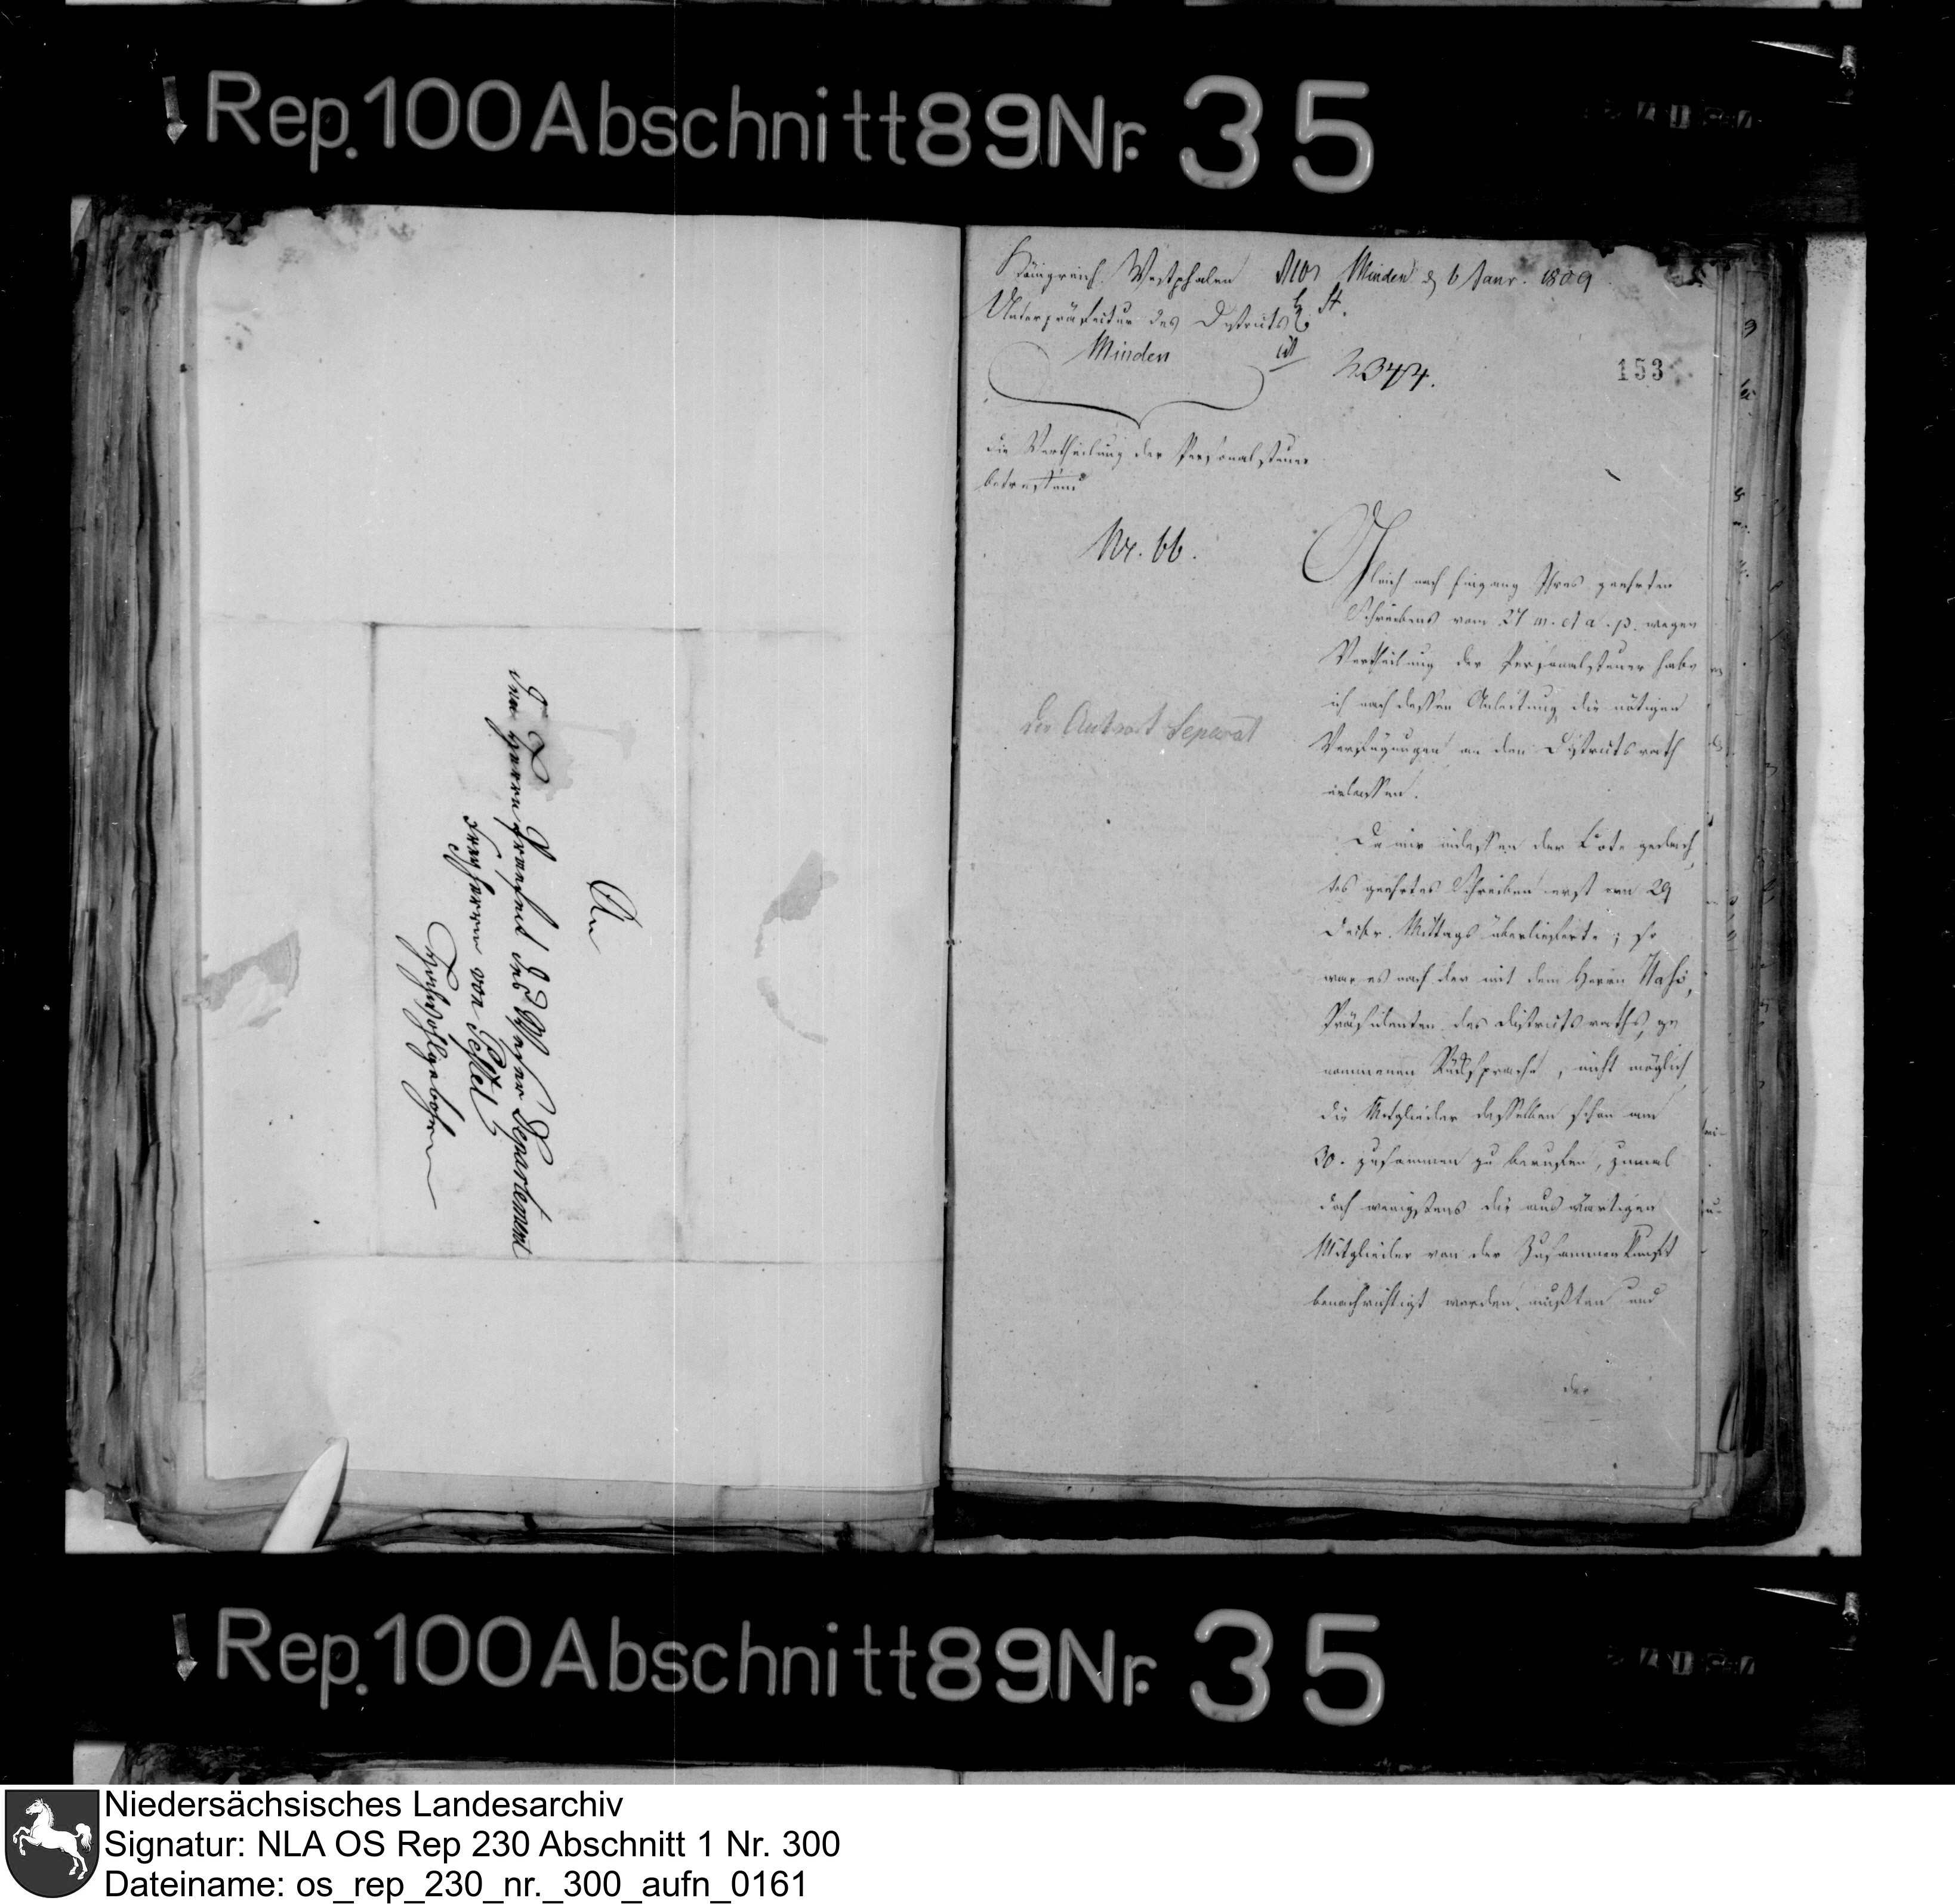 Rep. 100 Abschnitt 89 Nr. 35
An
den Herrn Praefect des Weser Departement
Freyherrn von Pestel
Hochwohlgebohren
Königreich Westphalen
Minden d 6 Janr. 1809
Unterpräfectur des Districts
Minden
2344.
153
die Vertheilung der Personalsteuer
betreffend
Nr. 66.
die Antwort Separat
Gleich nach Eingang Ihres geehrten
Schreibens vom 27 m. et a. p. wegen
Vertheilung der Personalsteuer habe
ich nach dessen Anleitung die nötigen
Verfügungen an den Districtsrath
erlassen.
Da mir indessen der Bote gedach
tes geehrtes Schreiben erst am 29
Decbr. Mittags überlieferte; so
war es nach der mit dem Herrn
Präsidenten des Districtsraths, ge
nommenen Rücksprache, nicht möglich
die Mitglieder desselben schon am
30. zusammen zu berufen, zumal
doch wenigstens die auswärtigen
Mitglieder von der Zusammenkunft
benachrichtigt werden mußten und
der
Rep. 100 Abschnitt 89 Nr. 35
Niedersächsisches Landesarchiv
Signatur: NLA OS Rep 230 Abschnitt 1 Nr. 300
Dateiname: os_rep_230_nr._300_aufn_0161